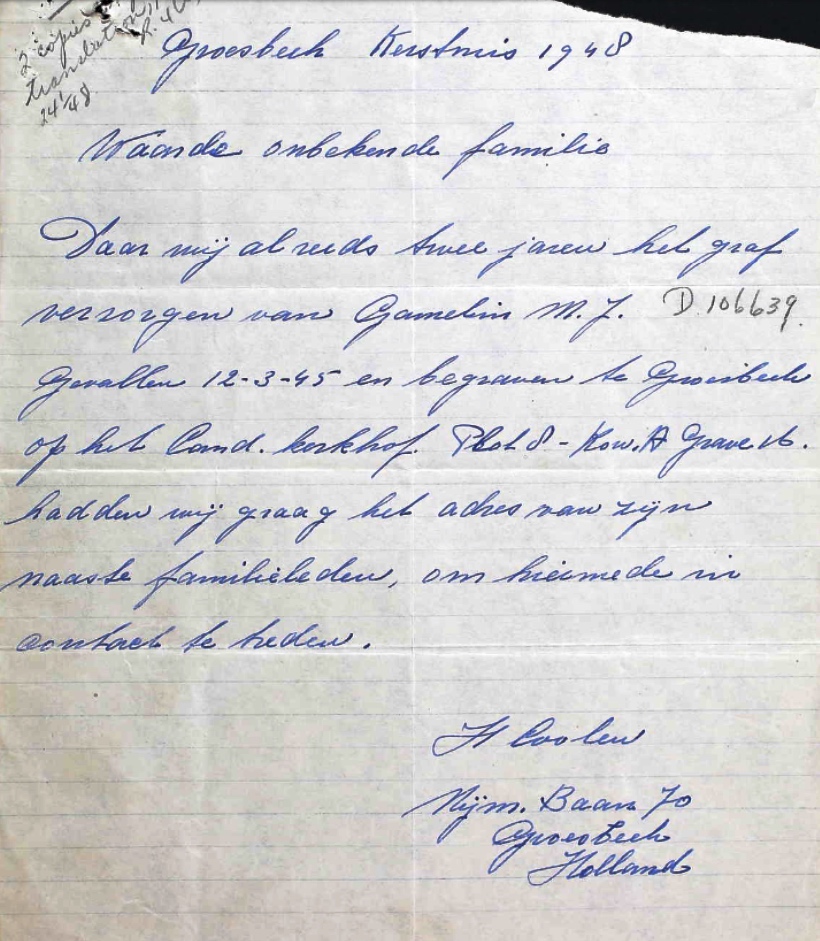 2 copies
translation,
24/48
Groesbeek Kerstmis 1948
Waarde onbekende familie
Daar wij al reeds twee jaren het graf
verzorgen van Gamelin M.J. D.106639
Gevallen 12-3-45 en begraven te Groesbeek
op het Cand. kerkhof. Plot 8 - Row. A Grave 16.
hadden wij graag het adres van zijn
naaste familieleden, om hiermede in
contact te treden.
H Coolen
Nijm. Baan 70
Groesbeek
Holland